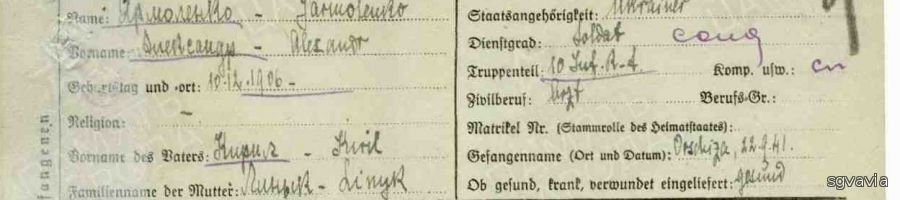 Name: Ярмоленко - Jarmolenko
Vorname: Александр - Alexandr
Geburtstag und -ort: 10.12.1906 -
Religion: -
Vorname des Vaters: Кирил - Kiril
Familienname der Mutter: Линык - Linyk
Staatsangehörigkeit: Ukrainer
Dienstgrad: Soldat солд
Truppenteil: 10 Inf. R-t. Komp. usw.: сп
Zivilberuf: Arzt Berufs-Gr.:
Matrikel Nr. (Stammrolle des Heimatstaates):
Gefangennahme (Ort und Datum): Orschiza, 22.9.41.
Ob gesund, krank, verwundet eingeliefert: gesund
fangenen
sgvavia